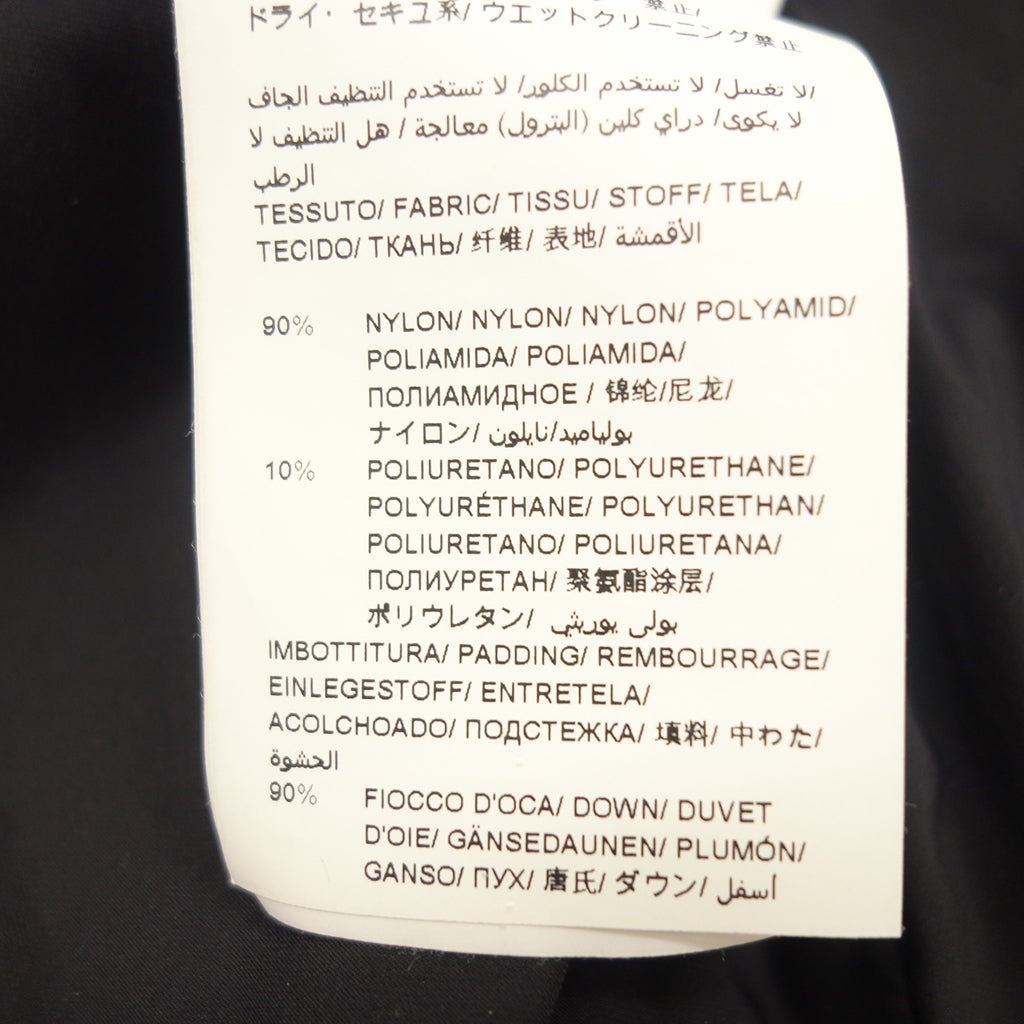 禁止/
ドライ・ セキユ系/ ウエットクリーニング禁止
لا تغسل/ لا تستخدم الكلور/ لا تستخدم التنظيف الجاف/
لا يكوى/ دراي كلين (البترول) معالجة / هل التنظيف لا
الرطب
TESSUTO/ FABRIC/ TISSU/ STOFF/ TELA/
TECIDO/ ТКАНЬ/ 纤维/ 表地/ الأقمشة
90% NYLON/ NYLON/ NYLON/ POLYAMID/
POLIAMIDA/ POLIAMIDA/
ПОЛИАМИДНОЕ / 锦纶/尼龙/
ナイロン/ بولياميد/نايلون
10% POLIURETANO/ POLYURETHANE/
POLYURÉTHANE/ POLYURETHAN/
POLIURETANO/ POLIURETANA/
ПОЛИУРЕТАН/ 聚氨酯涂层/
ポリウレタン/ بولي يوريثي
IMBOTTITURA/ PADDING/ REMBOURRAGE/
EINLEGESTOFF/ ENTRETELA/
ACOLCHOADO/ ПОДСТЕЖКА/ 填料/ 中わた/
الحشوة
90% FIOCCO D'OCA/ DOWN/ DUVET
D'OIE/ GÄNSEDAUNEN/ PLUMÓN/
GANSO/ ПУХ/ 唐氏/ ダウン/ أسفل